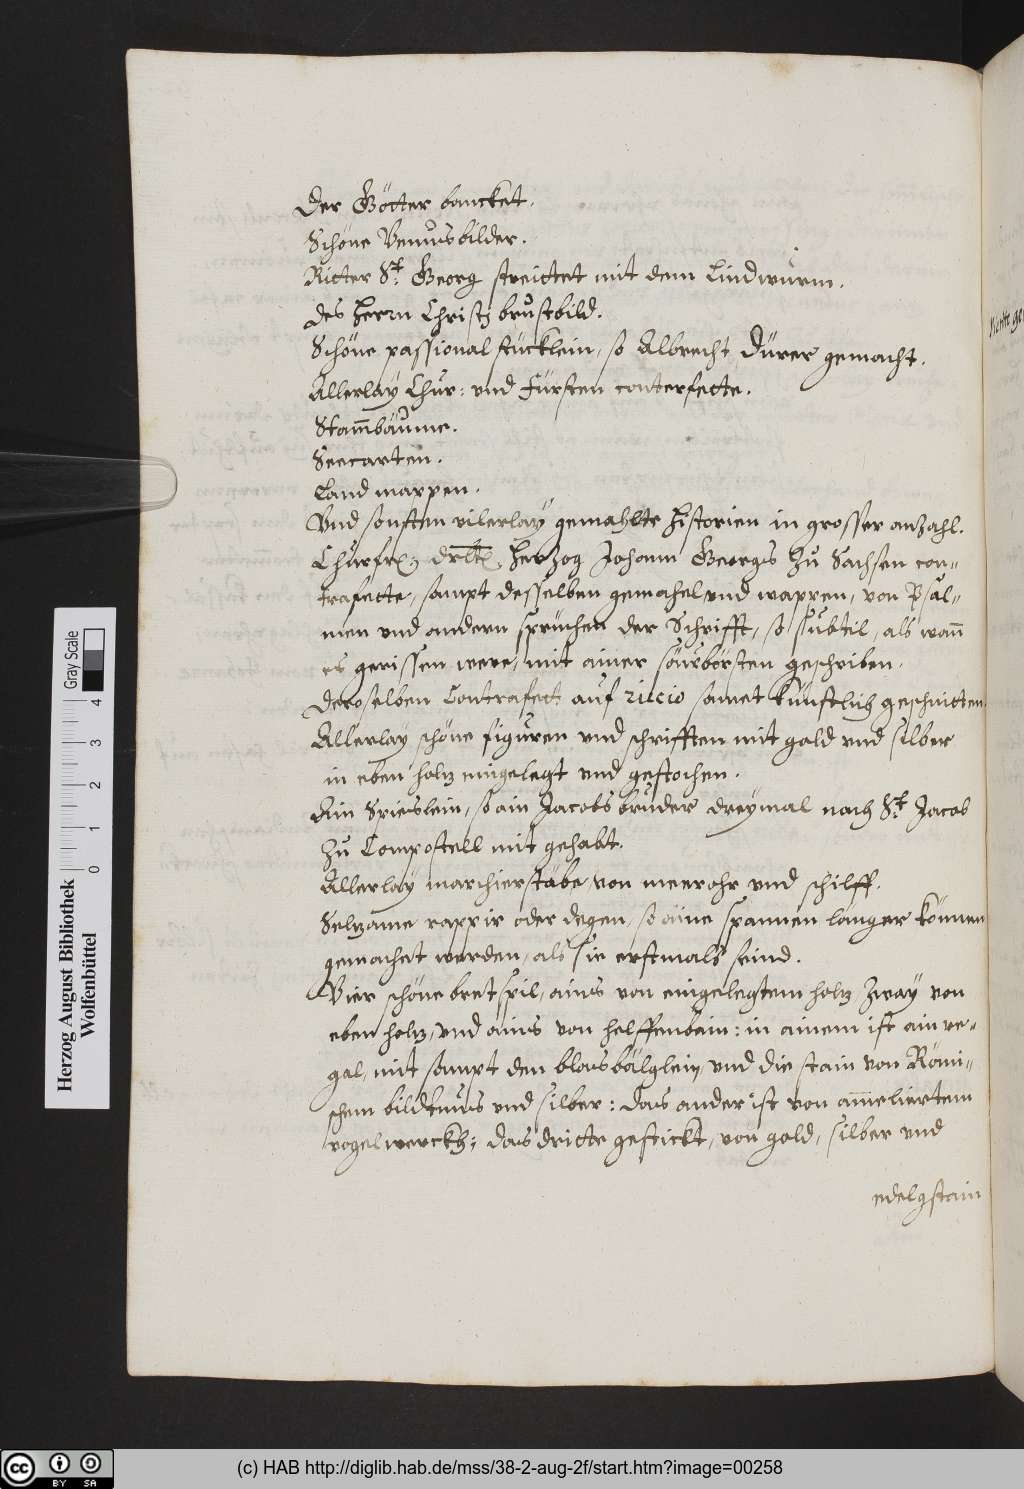 Der Götter bancket.
Schöne Venusbilder.
Ritter St: Georg streittet mit dem Lindwurm.
des herrn Christj brustbild.
Schöne passional stücklein, so Albrecht Dürer gemacht.
Allerlaÿ Chur: und Fürsten conterfette.
Stam̄bäume.
Seecarten.
Land mappen.
Vnd sonsten vilerlaÿ gemahlte historien in grosser anzahl.
Churfr: drlt: herzog Johann Georgs zu Sachsen con-
trafette, sampt desselben gemahel vnd wappen, von Psal-
men vnd andern sprüchen der Schrifft, so subtil, als wan̄
es gerissen were, mit ainer säubörsten geschriben.
deroselben Contrafect auf riccio samet künstlich geschnitten.
Allerlay schöne figuren vnd schrifften mit gold vnd silber
in eben holz eingelegt vnd gestochen.
Ain Spieslein, so ain Jacobs bruder dreÿmal nach St: Jacob
zu Compostell mit gehabt.
Allerlaÿ marchierstäbe, von meerohr vnd schilff.
Selzame rappir oder degen, so aine spannen langer können
gemachet werden, als sie erstmals seind.
Vier schöne bret spil, ains von eingelegtem holz, Zwaÿ von
eben holz, vnd ains von helffenbain: in ainem ist ain re-
gal, mit sampt den blasbälglein, vnd die stain von Römi-
schem bildtnus vnd silber: das ander ist von am̄eliertem
vogelwerckh: das dritte gestickt, von gold, silber vnd
edelgstain
Herzog August Bibliothek
Wolfenbüttel
0 1 2 3 4
Gray Scale
cc BY SA
(c) HAB http://diglib.hab.de/mss/38-2-aug-2f/start.htm?image=00258